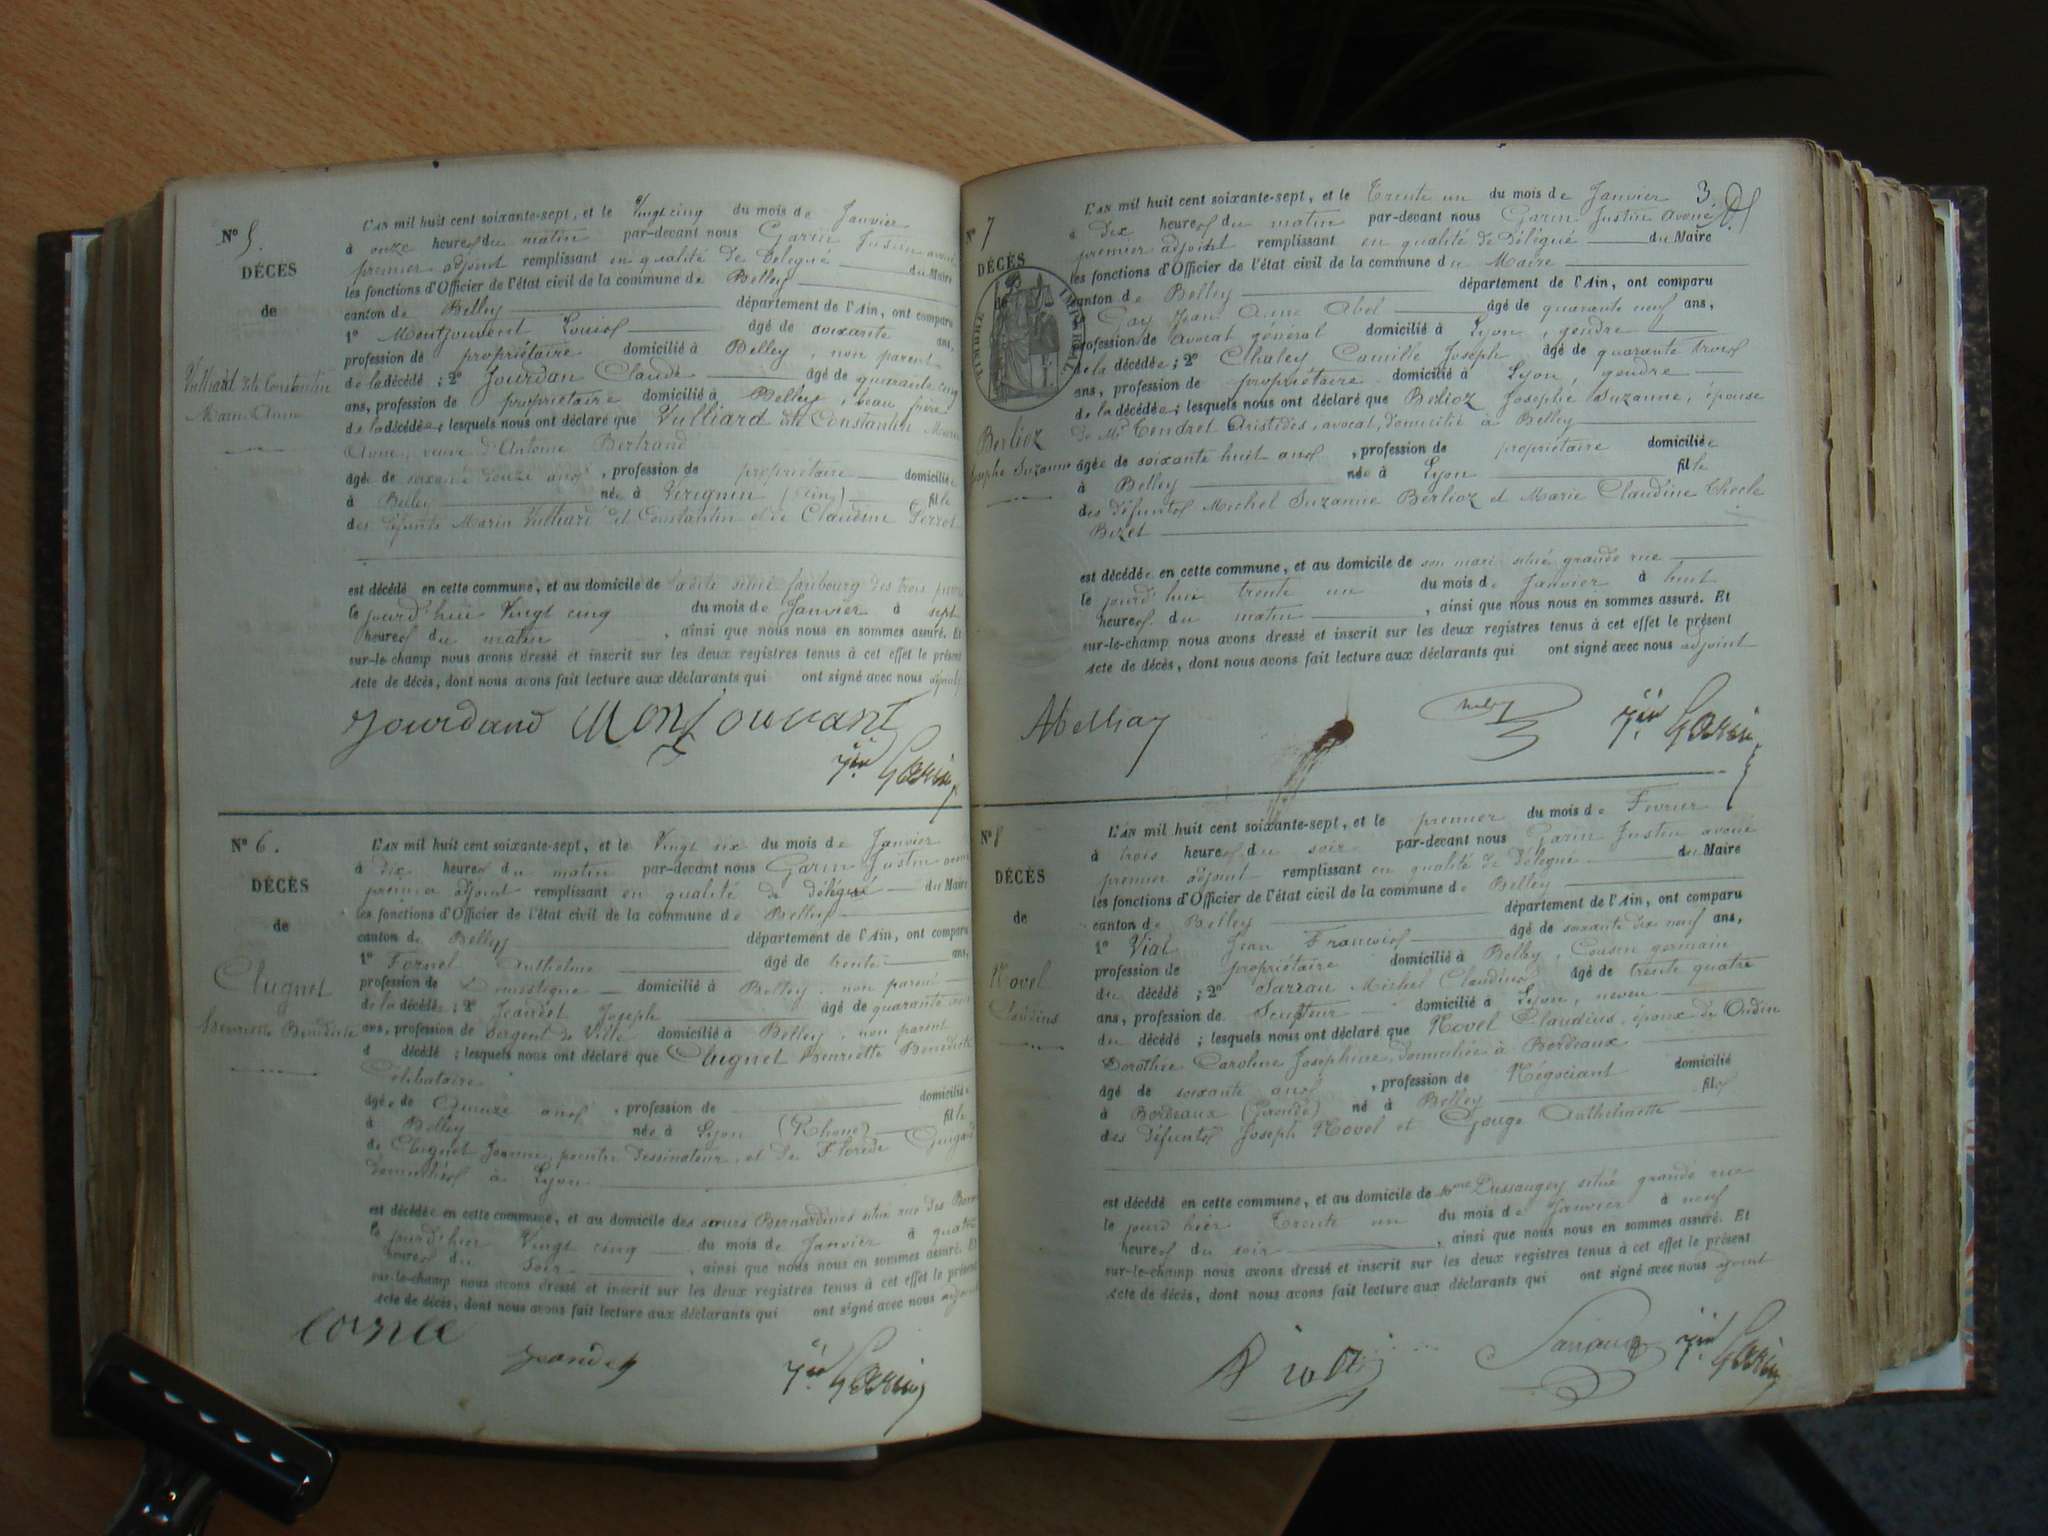 N° 5.
DÉCÈS
de
Vulliard dite Constantin
Marie Anne
L'AN mil huit cent soixante-sept, et le Vingt cinq du mois de Janvier
à onze heures du matin par-devant nous Garin Justin avoué
premier adjoint remplissant en qualité de Délégué du Maire
les fonctions d'Officier de l'état civil de la commune de Belley
canton de Belley département de l'Ain, ont comparu
1° Louis âgé de soixante ans,
profession de propriétaire domicilié à Belley, non parent
de la décédé; 2° Jourdan Claude âgé de quarante cinq
ans, profession de propriétaire domicilié à Belley, beau frère
de la décédée; lesquels nous ont déclaré que Vulliard dite Constantin Marie
Anne, veuve d'Antoine Bertrand
âgée de soixante douze ans, profession de propriétaire domiciliée
à Belley née à (Ain) fille
des défunts Marin Vulliard dit Constantin et de Claudine
est décédé en cette commune, et au domicile de ladite situé faubourg des trois
le jourd'hui Vingt cinq du mois de Janvier à sept
heures du matin, ainsi que nous nous en sommes assuré. Et
sur-le-champ nous avons dressé et inscrit sur les deux registres tenus à cet effet le présent
Acte de décès, dont nous avons fait lecture aux déclarants qui ont signé avec nous adjoint
Jourdand Montouvant
Jin Garin
N° 6.
DÉCÈS
de
Clugnet
Henriette Benédicte
L'AN mil huit cent soixante-sept, et le Vingt six du mois de Janvier
à dix heures du matin par-devant nous Garin Justin avoué
premier adjoint remplissant en qualité de délégué du Maire
les fonctions d'Officier de l'état civil de la commune de Belley
canton de Belley département de l'Ain, ont comparu
1° Anthelme âgé de trente ans,
profession de Domestique domicilié à Belley, non parent
de la décédé; 2° Jeandet Joseph âgé de quarante
ans, profession de Sergent de Ville domicilié à Belley, non parent
d décédé; lesquels nous ont déclaré que Clugnet Henriette Benédicte
Célibataire
âgée de Quinze ans, profession de domiciliée
à Belley née à Lyon (Rhône) fille
de Clugnet peintre dessinateur, et de
domiciliés à Lyon
est décédée en cette commune, et au domicile des sœurs Bernardines situé rue des
le jourd'hier Vingt cinq du mois de Janvier à quatre
heures du Soir, ainsi que nous nous en sommes assuré. Et
sur-le-champ nous avons dressé et inscrit sur les deux registres tenus à cet effet le présent
Acte de décès, dont nous avons fait lecture aux déclarants qui ont signé avec nous adjoint
Jin Garin
3.
N° 7
DÉCÈS
de
TIMBRE IMPERIAL
Berlioz
Josephe Suzanne
L'AN mil huit cent soixante-sept, et le Trente un du mois de Janvier
à dix heures du matin par-devant nous Garin Justin avoué
premier adjoint remplissant en qualité de Délégué du Maire
les fonctions d'Officier de l'état civil de la commune du Maire
canton de Belley département de l'Ain, ont comparu
Gay Jean Anne Abel âgé de quarante neuf ans,
profession de avocat général domicilié à Lyon, gendre
de la décédée; 2° Chaley Camille Joseph âgé de quarante trois
ans, profession de propriétaire domicilié à Lyon, gendre
de la décédée; lesquels nous ont déclaré que Berlioz Josephe Suzanne, épouse
de Mr Tendret Aristides, avocat, domicilié à Belley
âgée de soixante huit ans, profession de propriétaire domiciliée
à Belley née à Lyon fille
des défunts Michel Suzanne Berlioz et Marie Claudine Thecle
Bizet
est décédée en cette commune, et au domicile de son mari situé grande rue
le jourd'hui trente un du mois de Janvier à huit
heures du matin, ainsi que nous nous en sommes assuré. Et
sur-le-champ nous avons dressé et inscrit sur les deux registres tenus à cet effet le présent
Acte de décès, dont nous avons fait lecture aux déclarants qui ont signé avec nous adjoint
Jin Garin
N° 8
DÉCÈS
de
Novel
Claudius
L'AN mil huit cent soixante-sept, et le premier du mois de Fevrier
à trois heures du soir par-devant nous Garin Justin avoué
premier adjoint remplissant en qualité de délégué du Maire
les fonctions d'Officier de l'état civil de la commune de Belley
canton de Belley département de l'Ain, ont comparu
1° Vial Jean François âgé de soixante dix neuf ans,
profession de propriétaire domicilié à Belley, Cousin germain
du décédé; 2° Sarrau Michel Claudius âgé de trente quatre
ans, profession de Sculpteur domicilié à Lyon, neveu
du décédé; lesquels nous ont déclaré que Novel Claudius, époux de Oudin
Dorothée Caroline Josephine, domiciliée à Bordeaux
âgé de soixante ans, profession de Négociant domicilié
à Bordeaux (Gironde) né à Belley fils
des défunts Joseph Novel et Gouge Anthelmette
est décédé en cette commune, et au domicile de Mme Dussaugey situé grande rue
le jourd'hier Trente un du mois de Janvier à neuf
heures du soir, ainsi que nous nous en sommes assuré. Et
sur-le-champ nous avons dressé et inscrit sur les deux registres tenus à cet effet le présent
Acte de décès, dont nous avons fait lecture aux déclarants qui ont signé avec nous adjoint
Jin Garin